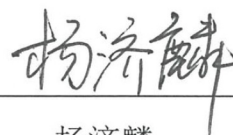 杨济麟
杨济麟